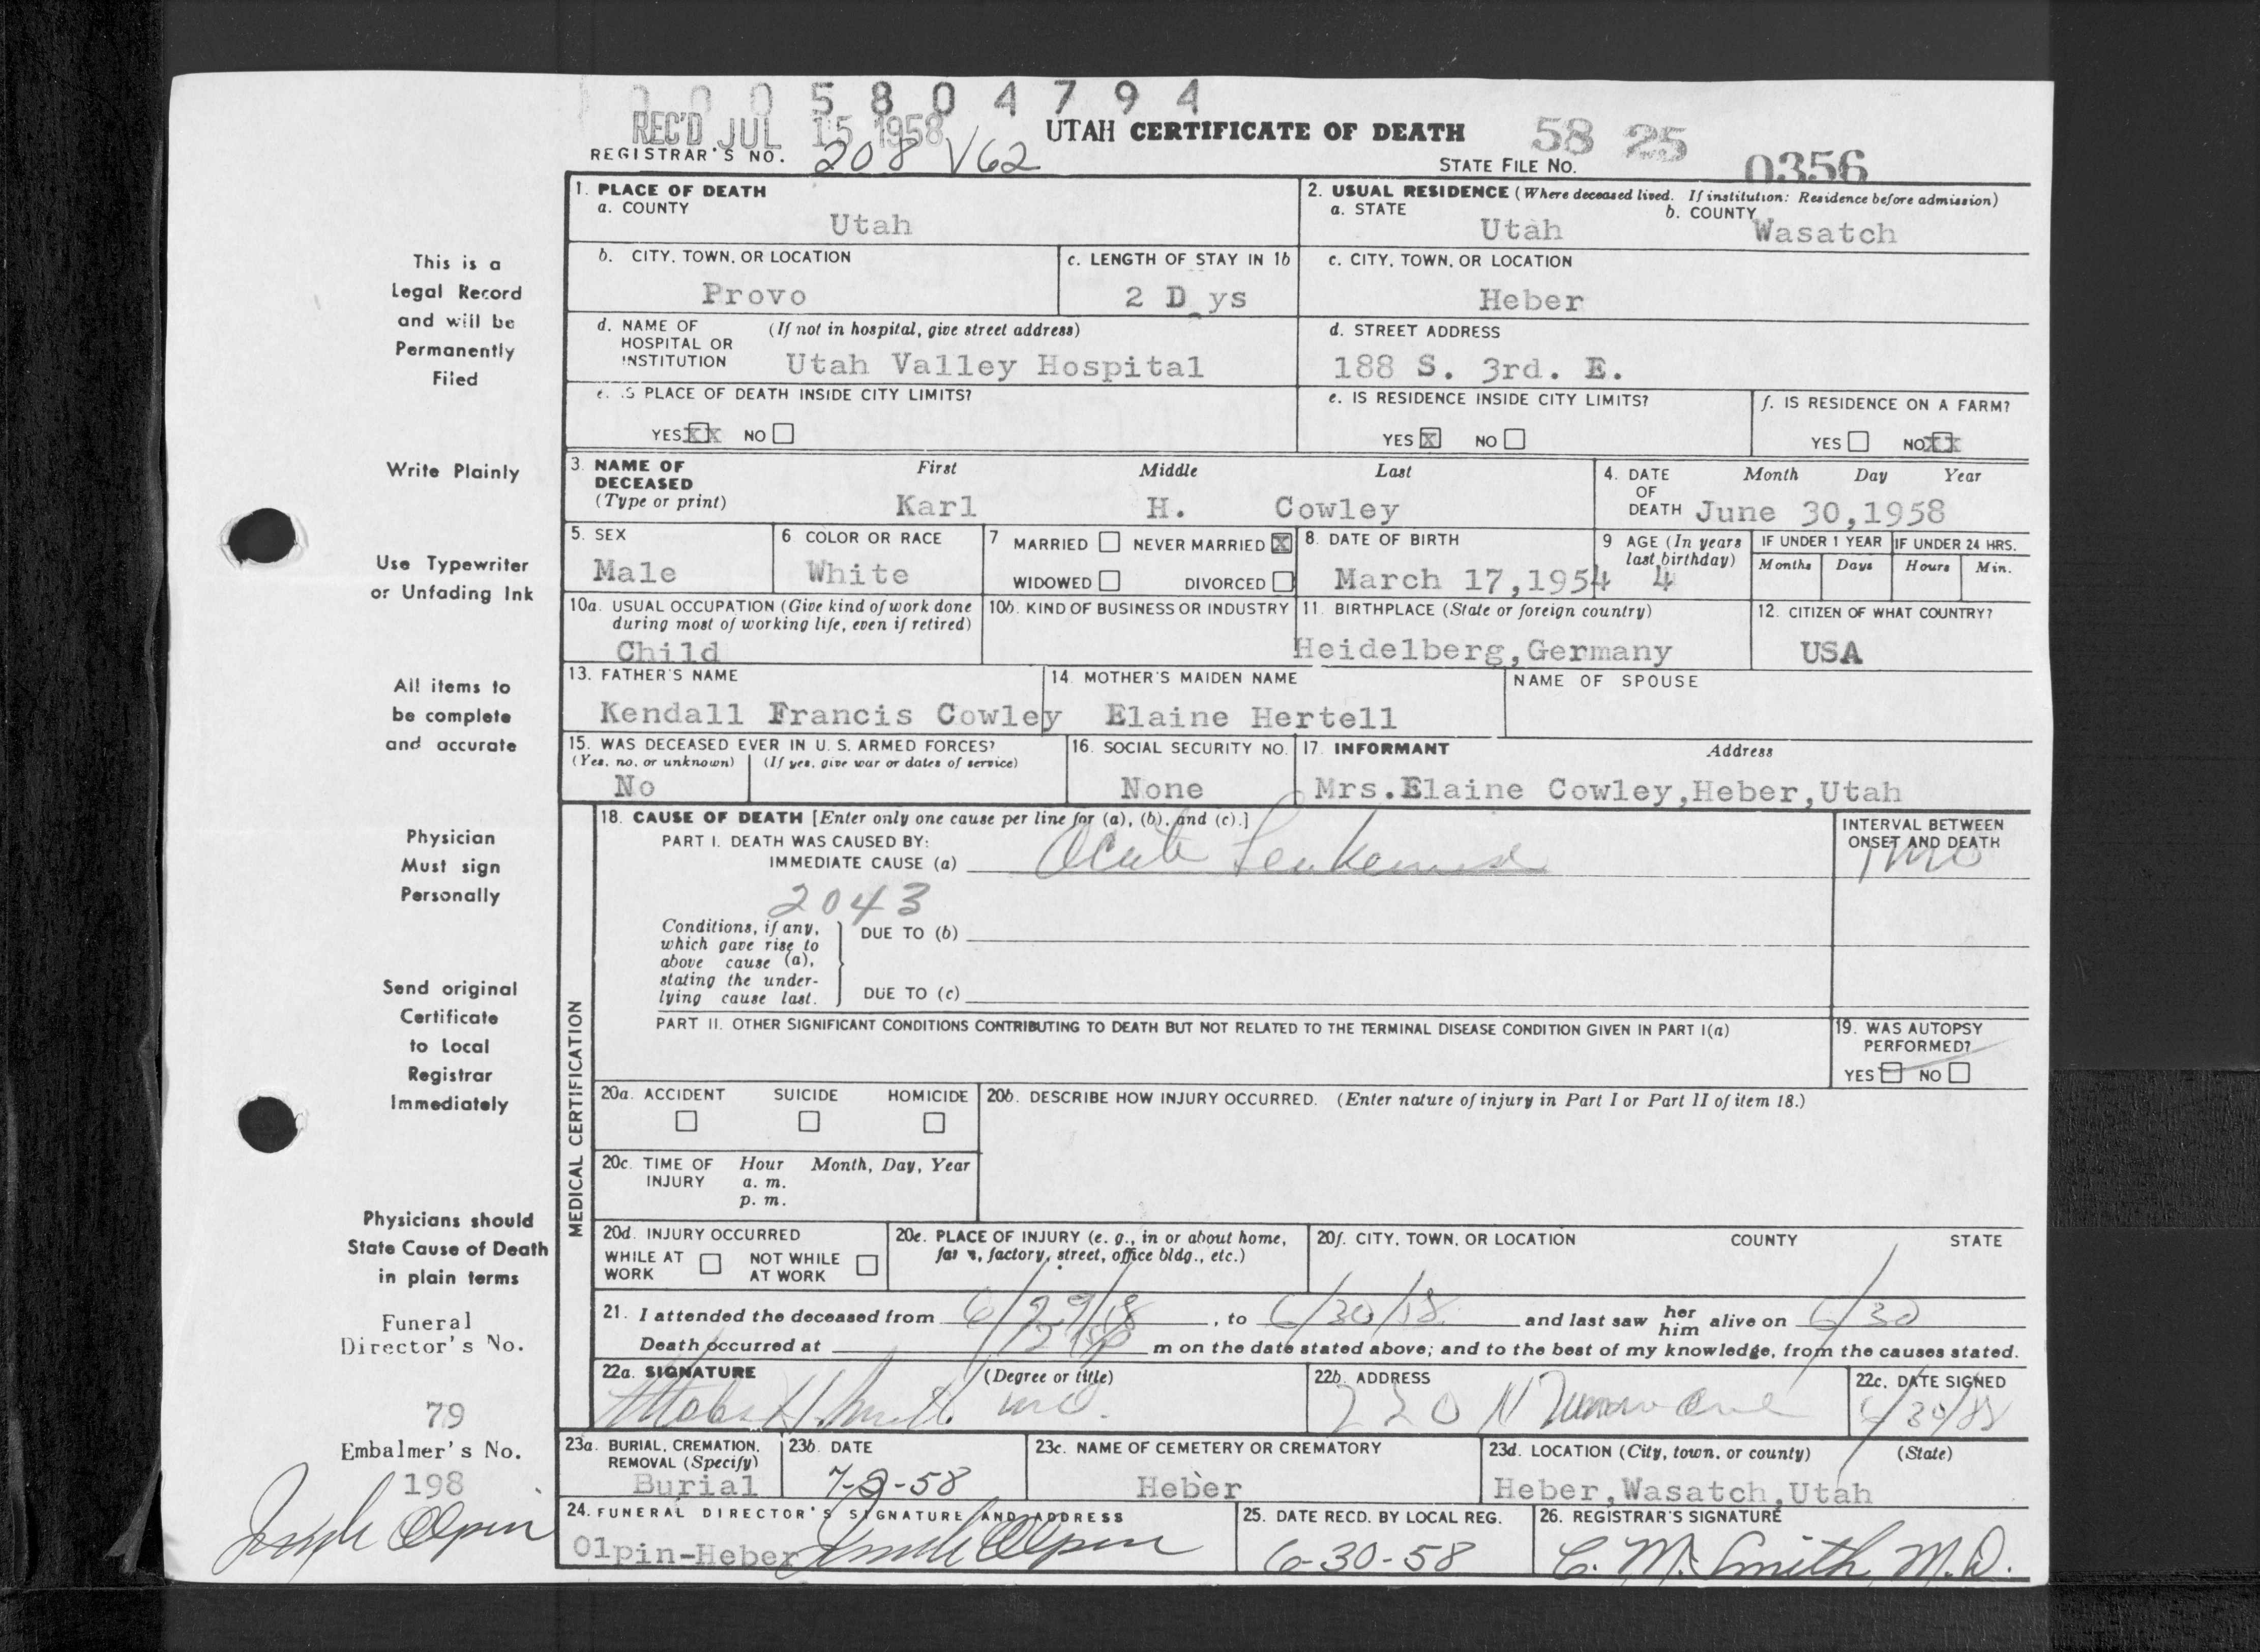 0 0 0 5 8 0 4 7 9 4
REC'D JUL 15 1958
UTAH CERTIFICATE OF DEATH
58 25 0356
REGISTRAR'S NO. 208 V62
STATE FILE NO.
1. PLACE OF DEATH
a. COUNTY
Utah
2. USUAL RESIDENCE (Where deceased lived. If institution: Residence before admission)
a. STATE
Utah
b. COUNTY
Wasatch
b. CITY, TOWN, OR LOCATION
Provo
c. LENGTH OF STAY IN 1b
2 D ys
c. CITY, TOWN, OR LOCATION
Heber
d. NAME OF HOSPITAL OR INSTITUTION
(If not in hospital, give street address)
Utah Valley Hospital
d. STREET ADDRESS
188 S. 3rd. E.
e. IS PLACE OF DEATH INSIDE CITY LIMITS?
YES XX NO
e. IS RESIDENCE INSIDE CITY LIMITS?
YES X NO
f. IS RESIDENCE ON A FARM?
YES NO XX
3. NAME OF DECEASED
(Type or print)
First Middle Last
Karl H. Cowley
4. DATE OF DEATH
Month Day Year
June 30,1958
5. SEX
Male
6. COLOR OR RACE
White
7 MARRIED NEVER MARRIED X
WIDOWED DIVORCED
8. DATE OF BIRTH
March 17,1954
9 AGE (In years last birthday)
4
IF UNDER 1 YEAR
Months Days
IF UNDER 24 HRS.
Hours Min.
10a. USUAL OCCUPATION (Give kind of work done during most of working life, even if retired)
Child
10b. KIND OF BUSINESS OR INDUSTRY
11. BIRTHPLACE (State or foreign country)
Heidelberg,Germany
12. CITIZEN OF WHAT COUNTRY?
USA
13. FATHER'S NAME
Kendall Francis Cowley
14. MOTHER'S MAIDEN NAME
Elaine Hertell
NAME OF SPOUSE
15. WAS DECEASED EVER IN U. S. ARMED FORCES?
(Yes, no, or unknown) (If yes, give war or dates of service)
No
16. SOCIAL SECURITY NO.
None
17. INFORMANT Address
Mrs.Elaine Cowley,Heber,Utah
MEDICAL CERTIFICATION
18. CAUSE OF DEATH [Enter only one cause per line for (a), (b), and (c).]
PART I. DEATH WAS CAUSED BY:
IMMEDIATE CAUSE (a) Acute Leukemia
INTERVAL BETWEEN ONSET AND DEATH
1 mo
2043
Conditions, if any, which gave rise to above cause (a), stating the underlying cause last.
DUE TO (b)
DUE TO (c)
PART II. OTHER SIGNIFICANT CONDITIONS CONTRIBUTING TO DEATH BUT NOT RELATED TO THE TERMINAL DISEASE CONDITION GIVEN IN PART I(a)
19. WAS AUTOPSY PERFORMED?
YES NO
20a. ACCIDENT SUICIDE HOMICIDE
20b. DESCRIBE HOW INJURY OCCURRED. (Enter nature of injury in Part I or Part II of item 18.)
20c. TIME OF INJURY
Hour Month, Day, Year
a. m.
p. m.
20d. INJURY OCCURRED
WHILE AT WORK NOT WHILE AT WORK
20e. PLACE OF INJURY (e. g., in or about home, farm, factory, street, office bldg., etc.)
20f. CITY, TOWN, OR LOCATION COUNTY STATE
21. I attended the deceased from 6/29/58, to 6/30/58 and last saw her him alive on 6/30
Death occurred at m on the date stated above; and to the best of my knowledge, from the causes stated.
22a. SIGNATURE (Degree or title)
22b. ADDRESS
220 N
22c. DATE SIGNED
6/30/58
23a. BURIAL, CREMATION, REMOVAL (Specify)
Burial
23b. DATE
7-2-58
23c. NAME OF CEMETERY OR CREMATORY
Heber
23d. LOCATION (City, town, or county) (State)
Heber,Wasatch,Utah
24. FUNERAL DIRECTOR'S SIGNATURE AND ADDRESS
Olpin-Heber Olpin
25. DATE RECD. BY LOCAL REG.
6-30-58
26. REGISTRAR'S SIGNATURE
C. M. Smith, M.D.
This is a
Legal Record
and will be
Permanently
Filed
Write Plainly
Use Typewriter
or Unfading Ink
All items to
be complete
and accurate
Physician
Must sign
Personally
Send original
Certificate
to Local
Registrar
Immediately
Physicians should
State Cause of Death
in plain terms
Funeral
Director's No.
79
Embalmer's No.
198
Olpin